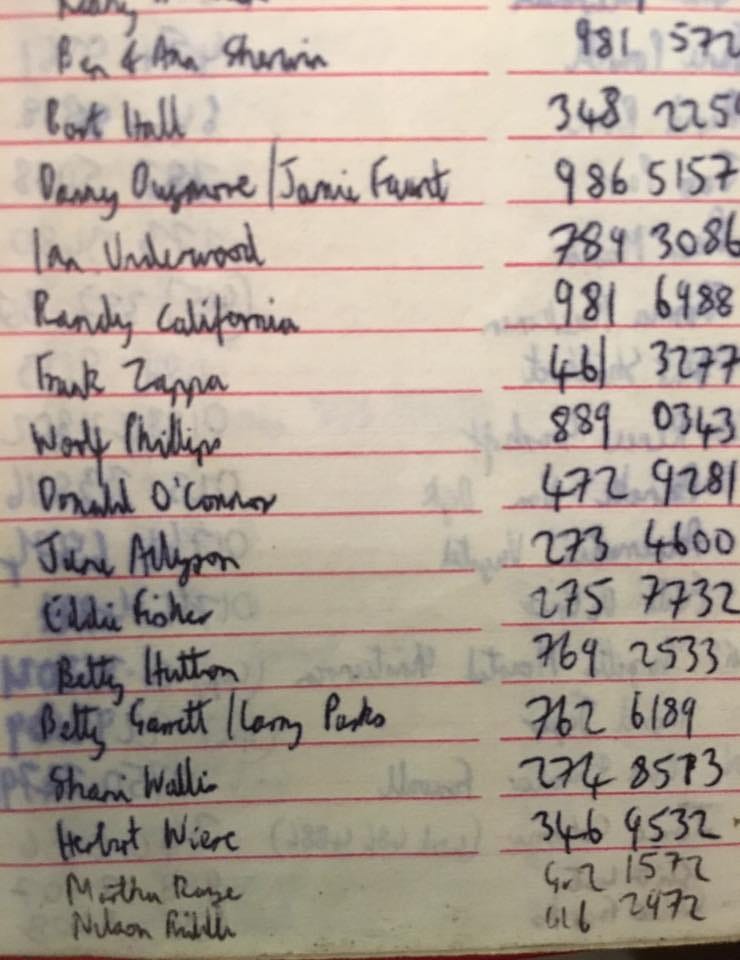 Ben & Ana Sherwin 981 572
Bart Hall 348 225
Danny / Jamie Faunt 986 5157
Ian Underwood 789 3086
Randy California 981 6988
Frank Zappa 461 3277
Worf Phillips 889 0343
Donald O'Connor 472 9281
June Allyson 273 4600
Eddie Fisher 275 7732
Betty Hutton 769 2533
Betty Garrett / Larry Parks 762 6189
Shani Wallis 274 8513
Herbert Wiere 346 9532
Martha Raye 1572
Nelson Riddle 2472